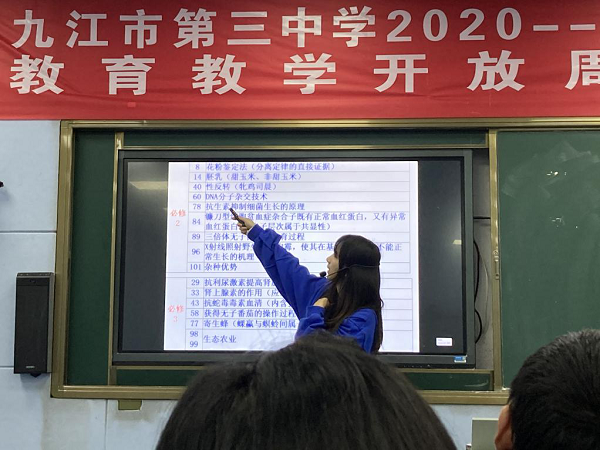 九江市第三中学2020--
教育教学开放周
8 花粉鉴定法（分离定律的直接证据）
14 胚乳（甜玉米、非甜玉米）
40 性反转（牝鸡司晨）
60 DNA分子杂交技术
78 抗生素抑制细菌生长的原理
必修2
84 镰刀型 胞贫血症杂合子既有正常血红蛋白，又有异常
血红蛋白 层次属于共显性）
89 三倍体无子 过程
96 X射线照射野 使其在基 不能正
常生长的机理
101 杂种优势
29 抗利尿激素提高肾
33 肾上腺素的作用
43 抗蛇毒毒素血清（内含
必修3
58 获得无子番茄的操作过程
77 寄生蜂（蜾蠃与螟蛉间属
98
99 生态农业